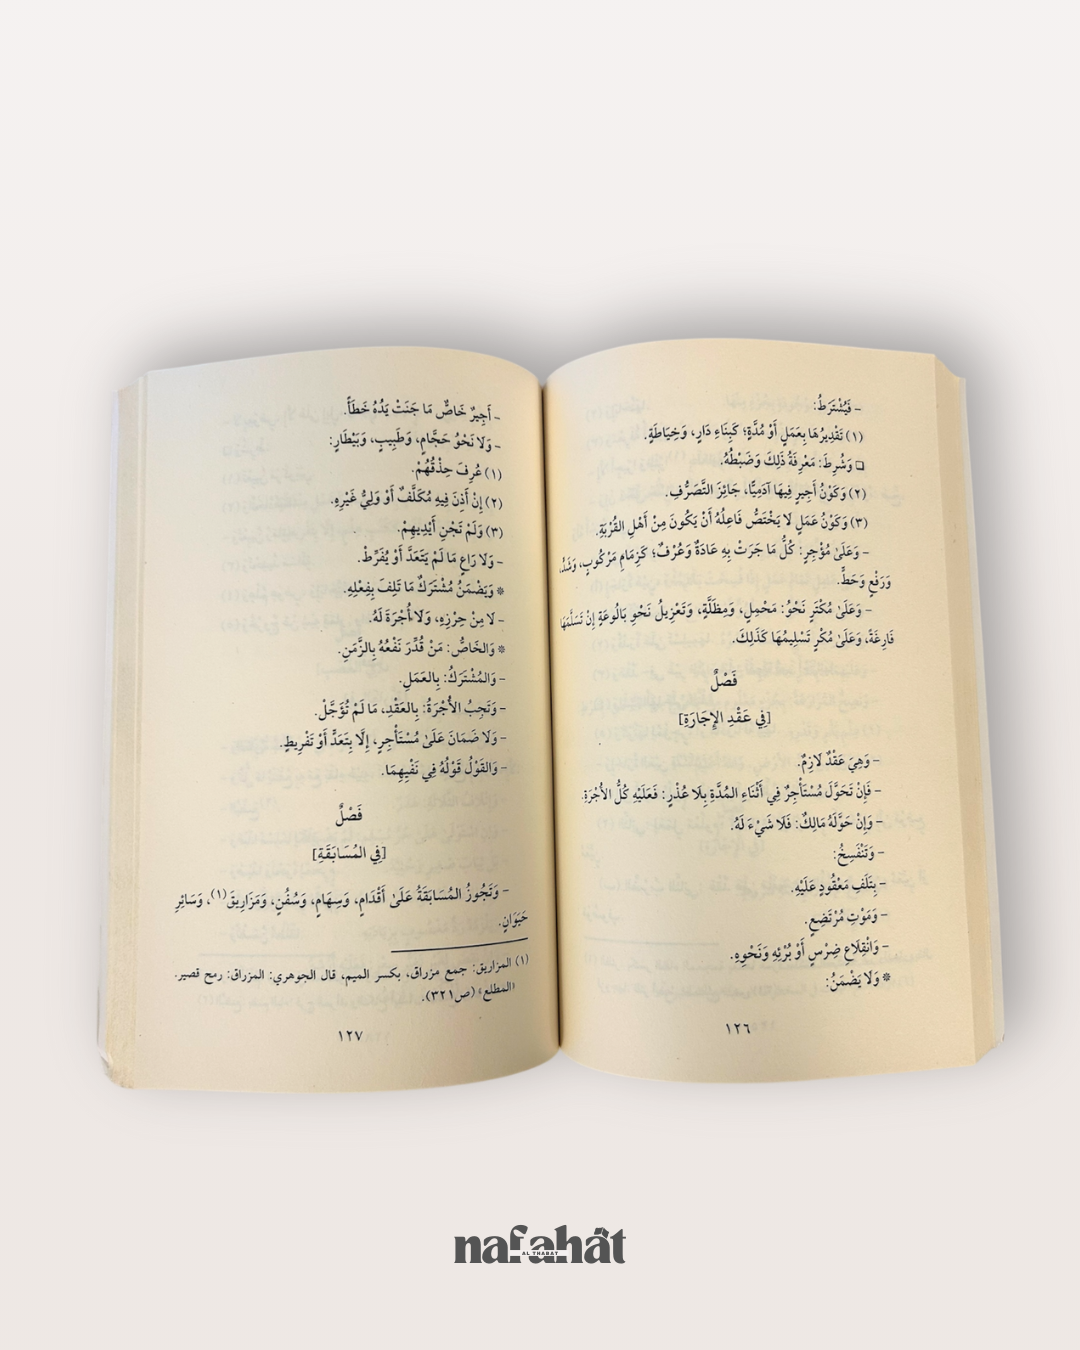 – فَيُشْتَرَطُ:
(١) تَقْدِيرُهَا بِعَمَلٍ أَوْ مُدَّةٍ؛ كَبِنَاءِ دَارٍ، وَخِيَاطَةٍ.
❏ وَشُرِطَ: مَعْرِفَةُ ذَلِكَ وَضَبْطُهُ.
(٢) وَكَوْنُ أَجِيرٍ فِيهَا آدَمِيًّا، جَائِزَ التَّصَرُّفِ.
(٣) وَكَوْنُ عَمَلٍ لَا يَخْتَصُّ فَاعِلُهُ أَنْ يَكُونَ مِنْ أَهْلِ القُرْبَةِ.
– وَعَلَىٰ مُؤْجِرٍ: كُلُّ مَا جَرَتْ بِهِ عَادَةٌ وَعُرْفٌ؛ كَزِمَامِ مَرْكُوبٍ، وَشَدٍّ،
وَرَفْعٍ وَحَطٍّ.
– وَعَلَىٰ مُكْتَرٍ نَحْوُ: مَحْمِلٍ، وَمِظَلَّةٍ، وَتَعْزِيلُ نَحْوِ بَالُوعَةٍ إِنْ تَسَلَّمَهَا
فَارِغَةً، وَعَلَىٰ مُكْرٍ تَسْلِيمُهَا كَذَلِكَ.
فَصْلٌ
[فِي عَقْدِ الإِجَارَةِ]
– وَهِيَ عَقْدٌ لَازِمٌ.
– فَإِنْ تَحَوَّلَ مُسْتَأْجِرٌ فِي أَثْنَاءِ المُدَّةِ بِلَا عُذْرٍ: فَعَلَيْهِ كُلُّ الأُجْرَةِ.
– وَإِنْ حَوَّلَهُ مَالِكٌ: فَلَا شَيْءَ لَهُ.
– وَتَنْفَسِخُ:
– بِتَلَفِ مَعْقُودٍ عَلَيْهِ.
– وَمَوْتِ مُرْتَضِعٍ.
– وَانْقِلَاعِ ضِرْسٍ أَوْ بُرْئِهِ وَنَحْوِهِ.
❊ وَلَا يَضْمَنُ:
١٢٦
– أَجِيرٌ خَاصٌّ مَا جَنَتْ يَدُهُ خَطَأً.
– وَلَا نَحْوُ حَجَّامٍ، وَطَبِيبٍ، وَبَيْطَارٍ:
(١) عُرِفَ حِذْقُهُمْ.
(٢) إِنْ أَذِنَ فِيهِ مُكَلَّفٌ أَوْ وَلِيُّ غَيْرِهِ.
(٣) وَلَمْ تَجْنِ أَيْدِيهِمْ.
– وَلَا رَاعٍ مَا لَمْ يَتَعَدَّ أَوْ يُفَرِّطْ.
❊ وَيَضْمَنُ مُشْتَرَكٌ مَا تَلِفَ بِفِعْلِهِ.
– لَا مِنْ حِرْزِهِ، وَلَا أُجْرَةَ لَهُ.
❊ وَالخَاصُّ: مَنْ قُدِّرَ نَفْعُهُ بِالزَّمَنِ.
– وَالمُشْتَرَكُ: بِالعَمَلِ.
– وَتَجِبُ الأُجْرَةُ: بِالعَقْدِ، مَا لَمْ تُؤَجَّلْ.
– وَلَا ضَمَانَ عَلَىٰ مُسْتَأْجِرٍ، إِلَّا بِتَعَدٍّ أَوْ تَفْرِيطٍ.
– وَالقَوْلُ قَوْلُهُ فِي نَفْيِهِمَا.
فَصْلٌ
[فِي المُسَابَقَةِ]
– وَتَجُوزُ المُسَابَقَةُ عَلَىٰ أَقْدَامٍ، وَسِهَامٍ، وَسُفُنٍ، وَمَزَارِيقَ(١)، وَسَائِرِ
حَيَوَانٍ.
(١) المزاريق: جمع مزراق، بكسر الميم، قال الجوهري: المزراق: رمح قصير.
«المطلع» (ص٣٢١).
١٢٧
nafahât
AL THABAT